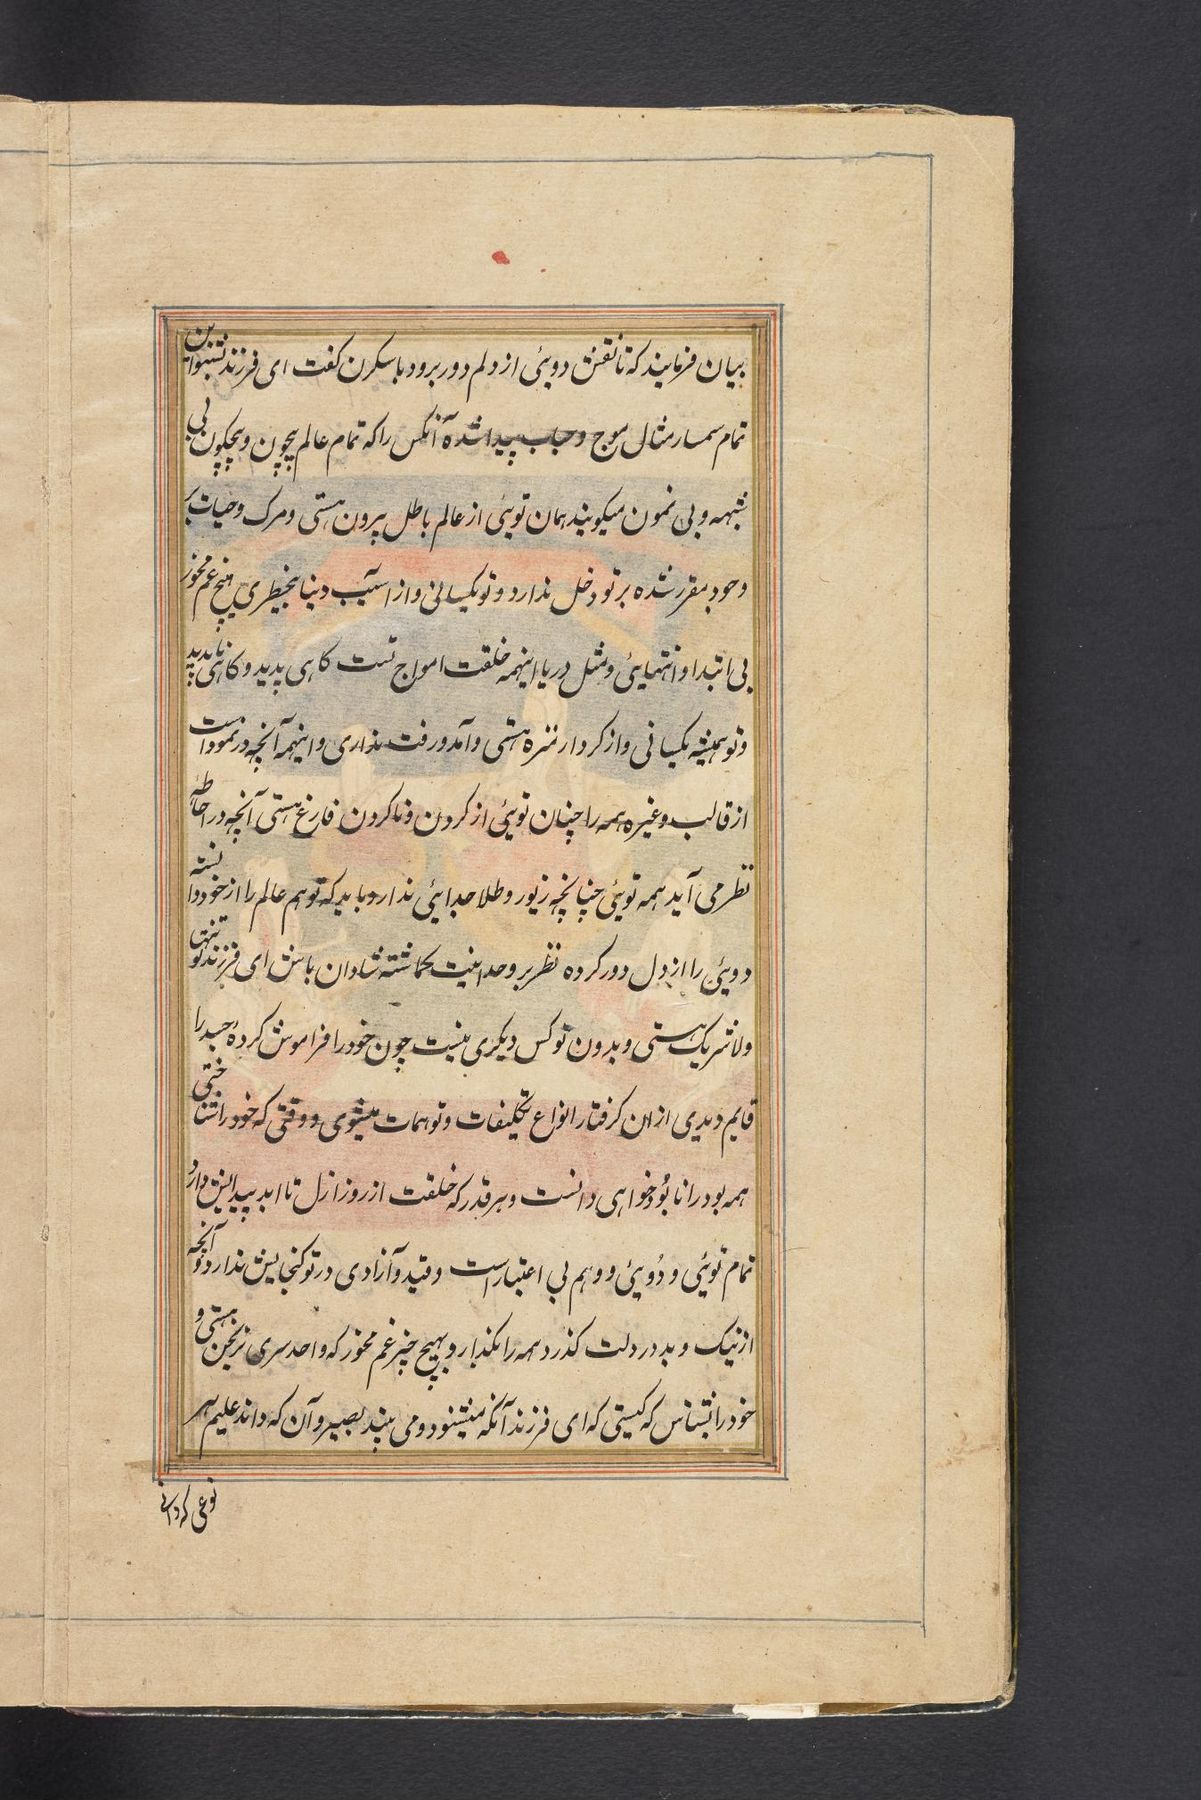 بیان فرمایند که تا نقش دویئ از دلم دور برود باسکرن کفت ای فرزند بشنو این
تمام سمسار مثال موج و حباب پیدا شده آنکس را که تمام عالم بیچون و بیچکون بی
شبهه و بی نمون میکویند همان توئی از عالم باطل بیرون هستی و مرک و حیات که
وجود مقرر شده بر تو دخل ندارد و تو یکسانی و از اسیب دنیا بیخطری هیچ غم مخور
بی ابتدا و انتهایئ و مثل دریا اینهمه خلقت امواج تست کاهی پدید و کاهی ناپدید
و تو همیشه یکسانی و از کردار منزه هستی و آمد و رفت نداری و اینهمه آنچه در نمود است
از قالب و غیره همه را چنان توئی از کردن و نا کردن فارغ هستی آنچه در احاطه
نظر می آید همه توئی چنانچه زیور و طلا جدایئ ندارد باید که تو هم عالم را از خود دانسته
دویئ را از دل دور کرده نظر بر وحدانیت کماشته شادان باش ای فرزند تو تنها
و لا شریک هستی و بدون تو کس دیکری نیست چون خود را فراموش کردهٔ جسد را
قایم دیدی ازان کرفتار انواع تکلیفات و توهمات میشوی و وقتی که خود را شناختی
همه بود را نابود خواهی دانست و هر قدر که خلقت از روز ازل تا ابد پیدایش دارد
تمام توئی و دویئ و وهم بی اعتبار است و قید و آزادی در تو کنجایش ندارد و آنچه
از نیک و بد در دلت کذرد همه را بکذار و بهیچ چیز غم مخور که واحد سری نرنجن هستی و
خود را بشناس که کیستی که ای فرزند آنکه میشنود و می بیند بصیر و آن که داند علیم هر
نوعی کردانی